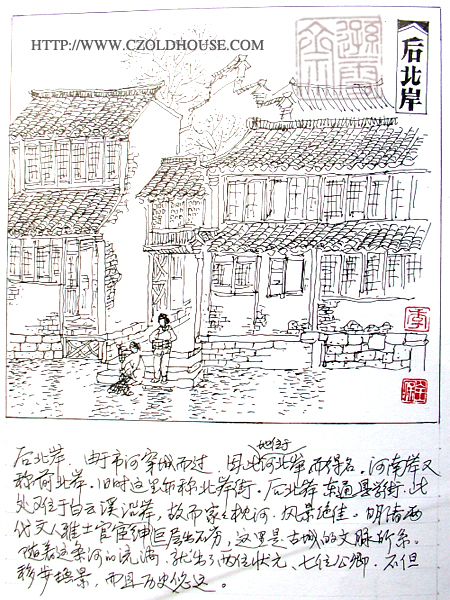 HTTP://WWW.CZOLDHOUSE.COM
后北岸
李
后北岸,由于市河穿城而过,因地位于此河北岸而得名。河南岸又
称前北岸。旧时这里亦称北岸街。后北岸东通县学街,此
处又位于白云溪沿岸,故而家家枕河,风景绝佳。明清两
代文人雅士官宦绅巨层出不穷,这里是古城的文脉所系。
随着这条河的流淌,就出了两位状元,七位公卿,不但
移步换景,而且历史悠远。